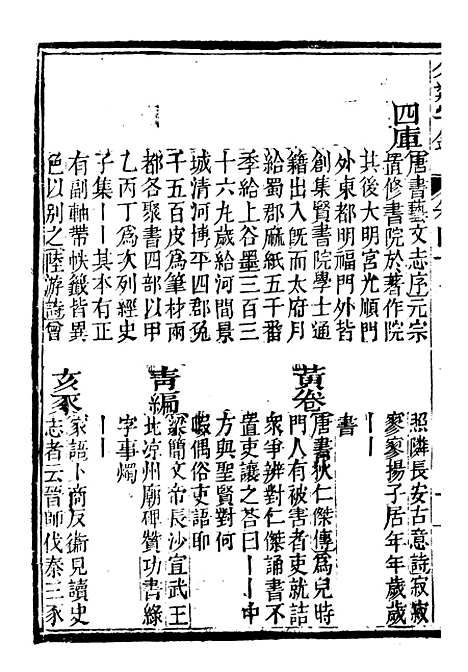 四庫
唐書藝文志序元宗
置修書院於著作院
其後大明宮光順門
外東都明福門外皆
創集賢書院學士通
籍出入旣而太府月
給蜀郡麻紙五千番
季給上谷墨三百三
十六丸歲給河間景
城清河博平四郡兔
千五百皮爲筆材兩
都各聚書四部以甲
乙丙丁爲次列經史
子集丨丨其本有正
有副軸帶帙籤皆異
色以別之陸游詩曾
照隣長安古意詩寂寂
寥寥揚子居年年歲歲
丨丨
書
黃卷
唐書狄仁傑傳爲兒時
門人有被害者吏就詰
衆爭辨對仁傑誦書不
置吏讓之荅曰丨丨中
方與聖賢對何
暇偶俗吏語耶
青編
梁簡文帝長沙宜武王
北凉州廟碑贊功書綠
字事燭
丨丨
亥豕
家語卜商反衛見讀史
志者云晉師伐秦三豕